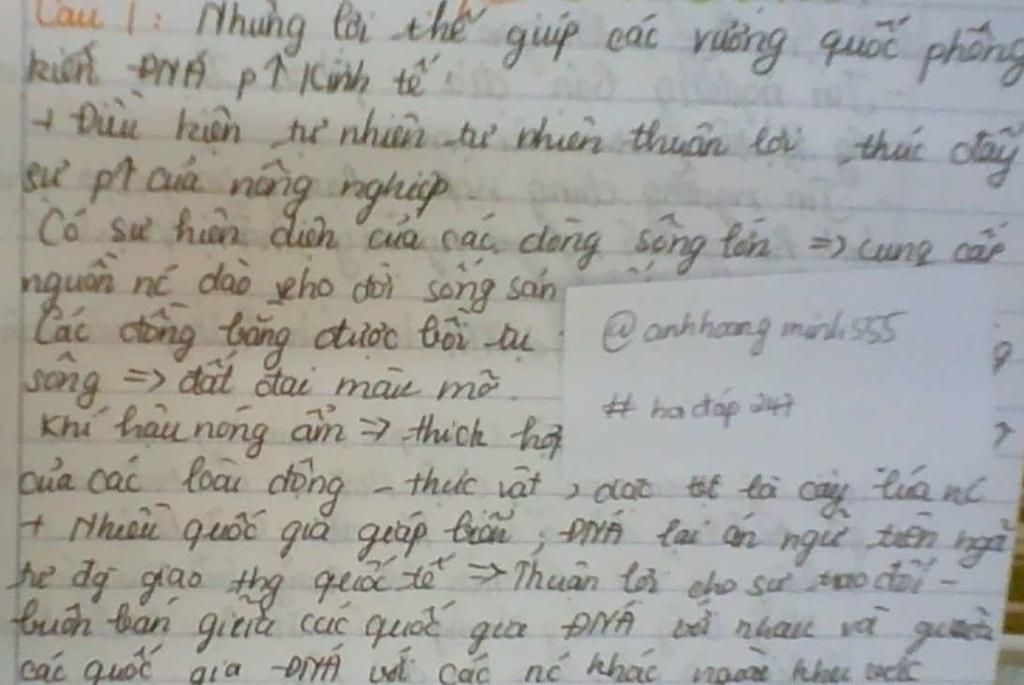 Câu 1: Những lợi thế giúp các vương quốc phong
kiến ĐNÁ p↑ kinh tế
+ Điều kiện tự nhiên tự nhiên thuận lợi, thúc đẩy
sự p↑ của nông nghiệp
Có sự hiện diện của các dòng sông lớn => cung cấp
nguồn nc dào cho đời sống sản
Các đồng bằng được bồi tụ
sông => đất đai màu mỡ.
Khí hậu nóng ẩm => thích hợp
của các loài động - thực vật, đặc là cây lúa nc
+ Nhiều quốc gia giáp biển, ĐNÁ lại án ngữ trên ngã
tư đg giao thg quốc tế => Thuận lợi cho sự trao đổi -
buôn bán giữa các quốc gia ĐNÁ với nhau và giữa
các quốc gia ĐNÁ với các nc khác ngoài khu vực
@anhhoangminh555
# hoidap247